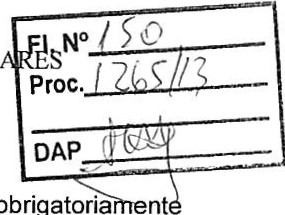 Fl. Nº 150
ARES
Proc. 1265/13
DAP
obrigatoriamente